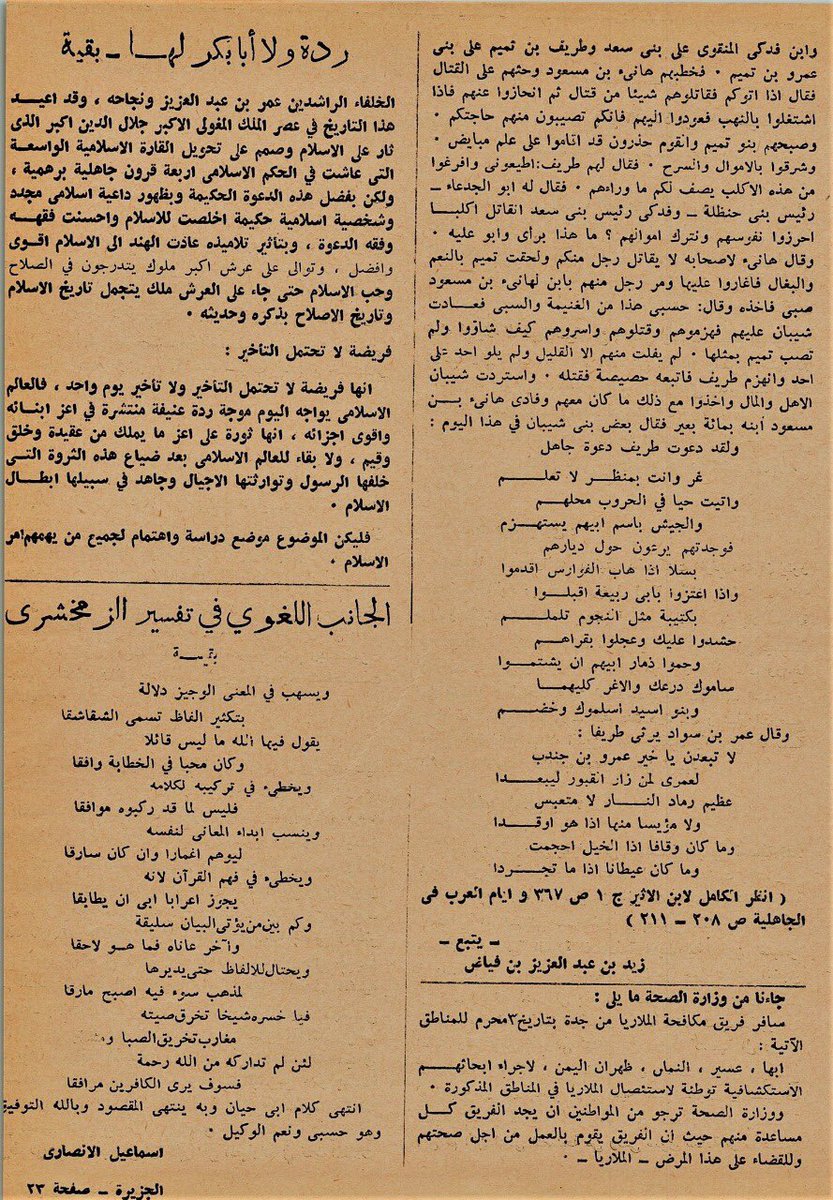 وابن فدكى المنقوى على بنى سعد وطريف بن تميم على بنى
عمرو بن تميم ٠ فخطبهم هانىء بن مسعود وحثهم على القتال
فقال اذا اتوكم فقاتلوهم شيئا من قتال ثم انحازوا عنهم فاذا
اشتغلوا بالنهب فعودوا اليهم فانكم تصيبون منهم حاجتكم ٠
وصبحهم بنو تميم والقوم حذرون قد اقاموا على علم مبايض ٠
وشرقوا بالاموال والسرح ٠ فقال لهم طريف: اطيعونى وافرغوا
من هذه الاكلب يصف لكم ما وراءهم ٠ فقال له ابو الجدعاء ــ
رئيس بنى حنظلة ــ وفدكى رئيس بنى سعد انقاتل اكلبـــا
احرزوا نفوسهم ونترك اموالهم ؟ ما هذا برأى وابو عليه ٠
وقال هانىء لاصحابه لا يقاتل رجل منكم ولحقت تميم بالنعم
والبغال فاغاروا عليها ومر رجل منهم بابن لهانىء بن مسعود
صبى فاخذه وقال: حسبى هذا من الغنيمة والسبى فعـــادت
شيبان عليهم فهزموهم وقتلوهم واسروهم كيف شاؤوا ولم
تصب تميم بمثلها ٠ لم يفلت منهم الا القليل ولم يلو احد على
احد وانهزم طريف فاتبعه حصيصة فقتله ٠ واستردت شيبان
الاهل والمال واخذوا مع ذلك ما كان معهم وفادى هانىء بـــن
مسعود ابنه بمائة بعير فقال بعض بنى شيبان في هذا اليوم :
ولقد دعوت طريف دعوة جاهل
غر وانت بمنظـــر لا تعلـــم
واتيت حيا في الحروب محلهـــم
والجيش باسم ابيهم يستهـــزم
فوجدتهم يرعون حول ديارهم
بسلا اذا هاب الفوارس اقدموا
واذا اعتزوا بابى ربيعة اقبلـــوا
بكتيبة مثل النجوم تلملـــم
حشدوا عليك وعجلوا بقراهـــم
وحموا ذمار ابيهم ان يشتمـــوا
سلموك درعك والاغر كليهمـــا
وبنو اسيد اسلموك وخضـــم
وقال عمر بن سواد يرثى طريفا :
لا تبعدن يا خير عمرو بن جندب
لعمرى لمن زار القبور ليبعـــدا
عظيم رماد النـــار لا متعبس
ولا مؤيسا منها اذا هو اوقـــدا
وما كان وقافا اذا الخيل احجمت
وما كان عيطانا اذا ما تجـــردا
( انظر الكامل لابن الاثير ج ١ ص ٣٦٧ و ايام العرب فى
الجاهلية ص ٢٠٨ ــ ٢١١ )
ــ يتبع ــ
زيد بن عبد العزيز بن فياض
جاءنا من وزارة الصحة ما يلى :
سافر فريق مكافحة الملاريا من جدة بتاريخ ٣ محرم للمناطق
الآتية :
ابها ، عسير ، النماص ، ظهران اليمن ، لاجراء ابحاثهـــم
الاستكشافية توطئة لاستئصال الملاريا في المناطق المذكورة ٠
ووزارة الصحة ترجو من المواطنين ان يجد الفريق كـــل
مساعدة منهم حيث ان الفريق يقوم بالعمل من اجل صحتهم
وللقضاء على هذا المرض ــ الملاريا ــ ٠
ردة ولا أبا بكر لهـا ــ بقية
الخلفاء الراشدين عمر بن عبد العزيز ونجاحه ، وقد اعيـــد
هذا التاريخ في عصر الملك المغولى الاكبر جلال الدين اكبر الذى
ثار على الاسلام وصمم على تحويل القارة الاسلامية الواسعة
التى عاشت في الحكم الاسلامى اربعة قرون جاهلية برهمية ،
ولكن بفضل هذه الدعوة الحكيمة وبظهور داعية اسلامى مجدد
وشخصية اسلامية حكيمة اخلصت للاسلام واحسنت فقهـــه
وفقه الدعوة ، وبتأثير تلاميذه عادت الهند الى الاسلام اقوى
وافضل ، وتوالى على عرش اكبر ملوك يتدرجون في الصلاح
وحب الاسلام حتى جاء على العرش ملك يتجمل تاريخ الاسلام
وتاريخ الاصلاح بذكره وحديثه ٠
فريضة لا تحتمل التأخير :
انها فريضة لا تحتمل التأخير ولا تأخير يوم واحد ، فالعالم
الاسلامى يواجه اليوم موجة ردة عنيفة منتشرة في اعز ابنـائه
واقوى اجزائه ، انها ثورة على اعز ما يملك من عقيدة وخلق
وقيم ، ولا بقاء للعالم الاسلامى بعد ضياع هذه الثروة التـــى
خلفها الرسول وتوارثتها الاجيال وجاهد في سبيلها ابطـــال
الاسلام ٠
فليكن الموضوع موضع دراسة واهتمام لجميع من يهمهم امر
الاسلام ٠
الجانب اللغوي في تفسير الزمخشرى
بقيـــة
ويسهب في المعنى الوجيز دلالة
بتكثير الفاظ تسمى الشقاشقا
يقول فيها الله ما ليس قائلا
وكان محبا في الخطابة وافقا
ويخطىء في تركيبه لكلامه
فليس لما قد ركبوه موافقا
وينسب ابداء المعانى لنفسه
ليوهم اغمارا وان كان سارقا
ويخطىء في فهم القرآن لانه
يجوز اعرابا ابى ان يطابقا
وكم بين من يؤتى البيان سليقة
وآخر عاناه فما هـــو لاحقا
ويحتال للالفاظ حتى يديرها
لمذهب سوء فيه اصبح مارقا
فيا خسره شيخا تخرق صيته
مغارب تخريق الصبا و
لئن لم تداركه من الله رحمة
فسوف يرى الكافرين مرافقا
انتهى كلام ابى حيان وبه ينتهى المقصود وبالله التوفيق
وهو حسبى ونعم الوكيل ٠
اسماعيل الانصارى
الجزيرة ــ صفحة ٢٣